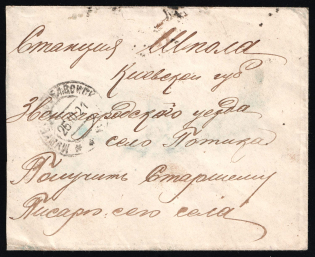 Станция Шпола
Киевской губ
Звенигородского уезда
село Потики
Получить Старшему
Писарю сего села